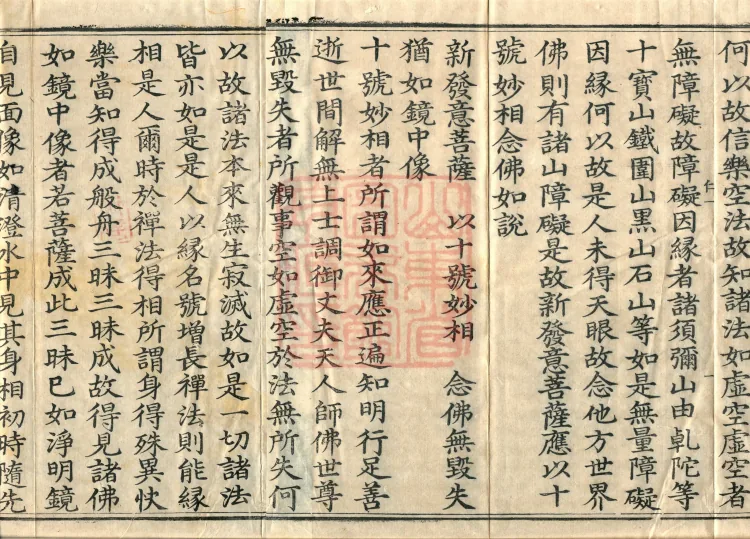 何以故信樂空法故知諸法如虛空虛空者
無障礙故障礙因緣者諸須彌山由乹陀等
十寶山鐵圍山黑山石山等如是無量障礙
因緣何以故是人未得天眼故念他方世界
佛則有諸山障礙是故新發意菩薩應以十
號妙相念佛如說
新發意菩薩　以十號妙相　念佛無毀失
猶如鏡中像
十號妙相者所謂如來應正遍知明行足善
逝世間解無上士調御丈夫天人師佛世尊
無毀失者所觀事空如虛空於法無所失何
以故諸法本來無生寂滅故如是一切諸法
皆亦如是是人以緣名號增長禪法則能緣
相是人爾時於禪法得相所謂身得殊異快
樂當知得成般舟三昧三昧成故得見諸佛
如鏡中像者若菩薩成此三昧已如淨明鏡
自見面像如清澄水中見其身相初時隨先